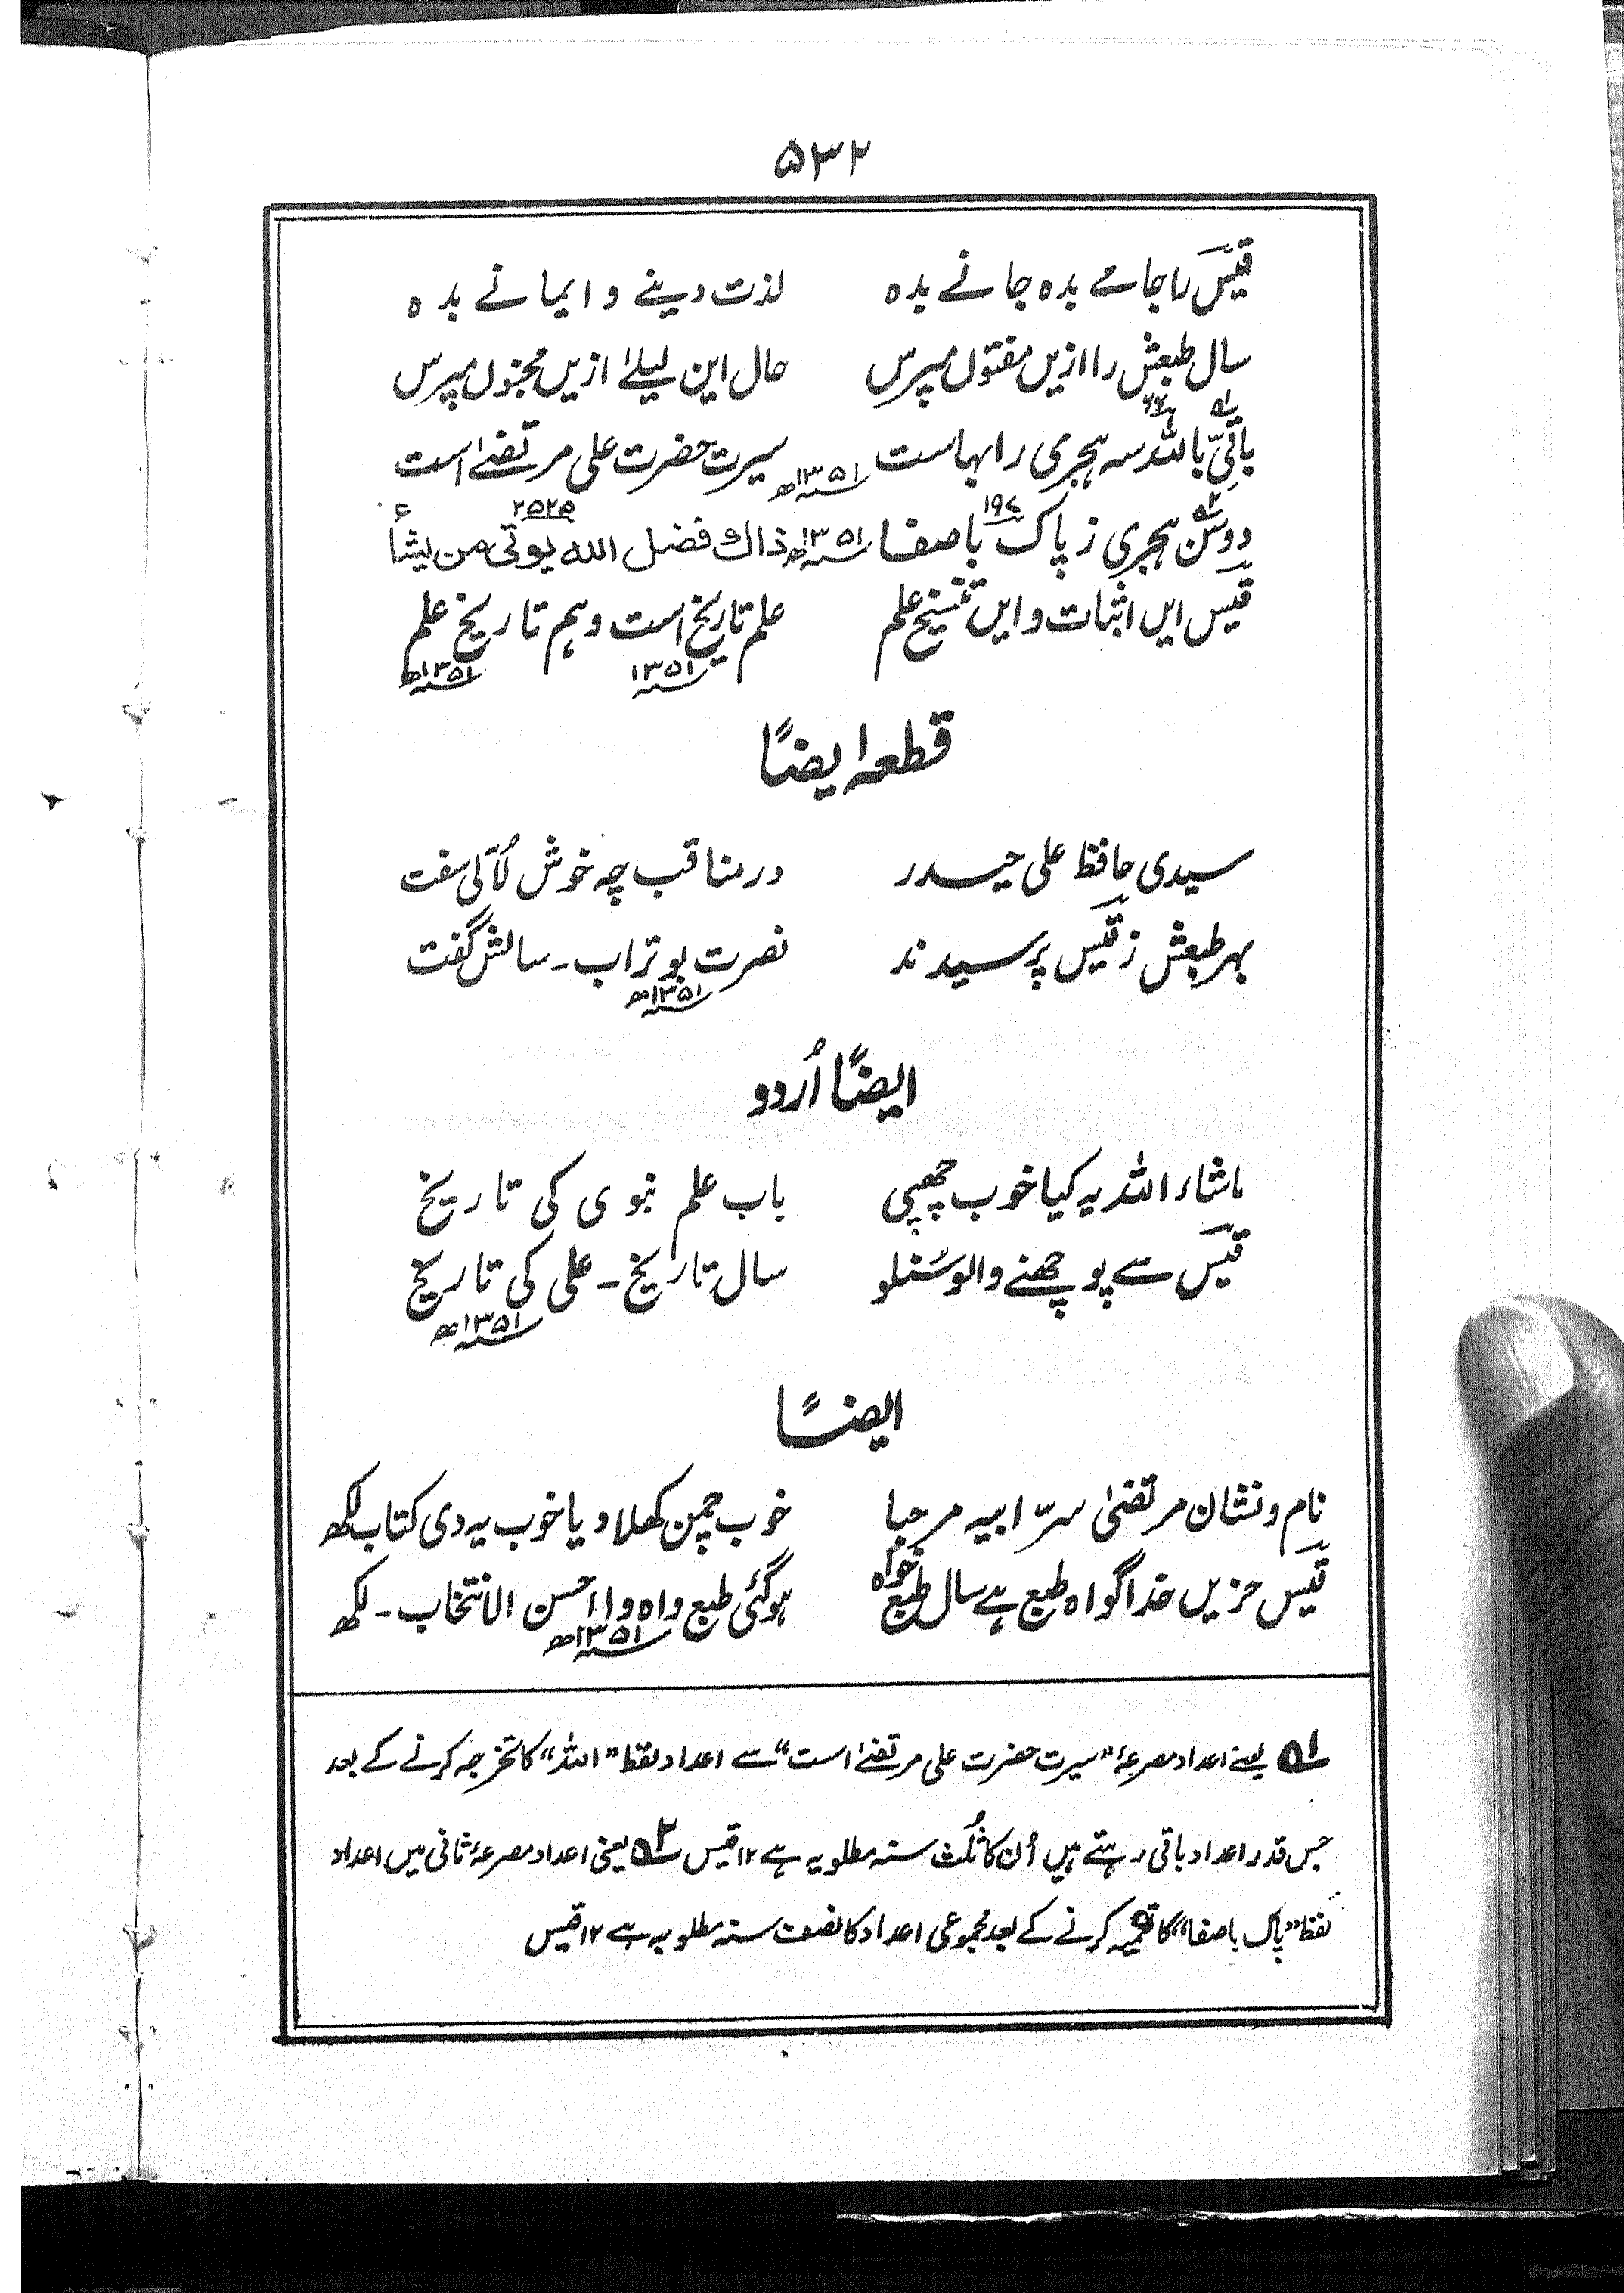 ۵۳۲
قیسؔ را جامے بدہ جانے بدہ لذت دینے و ایمانے بدہ
سال طبعش را ازیں مفتول مپرس حال ایں لیلےٰ ازیں مجنوں مپرس
باقیِّ باللہ سہ ہجری را بہاست سیرت حضرت علی مرتضےٰ است
۱؎ ۶۶ ۱۳۵۱ھ
دوسن ہجری ز پاک باصفا ذالک فضل اللہ یوتی من یشآء
۲؎ ۱۹۷ ۱۳۵۱ھ ۲۵۲۵
قیسؔ ایں اثبات و ایں تنسیخ علم علم تاریخ است و ہم تاریخ علم
۱۳۵۱ ۱۳۵۱ھ
قطعہ ایضاً
سیدی حافظ علی حیدر در مناقب چہ خوش لُآلی سفت
بہر طبعش ز قیسؔ پرسیدند نصرت بوتراب۔ سالش گفت
۱۳۵۱ھ
ایضاً اُردو
ماشاء اللہ یہ کیا خوب چھپی باب علم نبوی کی تاریخ
قیسؔ سے پوچھنے والو سُنلو سال تاریخ۔ علی کی تاریخ
۱۳۵۱ھ
ایضاً
نام و نشان مرتضیٰ سرّ ابیہ مرحبا خوب چمن کھلا دیا خوب یہ دی کتاب لکھ
قیسؔ حزیں خدا گواہ طبع ہے سال طبع خواہ ہوگئی طبع واہ وا احسن الانتخاب۔ لکھ
۱۳۵۱ھ
۱؎ یعنے اعداد مصرعۂ ”سیرت حضرت علی مرتضےٰ است“ سے اعداد لفظ ”اللہ“ کا تخرجہ کرنے کے بعد
جس قدر اعداد باقی رہتے ہیں اُن کا ثُلث سنہ مطلوبہ ہے ۱۲ قیس ۲؎ یعنی اعداد مصرعۂ ثانی میں اعداد
لفظ ”پاک باصفا“ کا تعمیہ کرنے کے بعد مجموعی اعداد کا نصف سنہ مطلوبہ ہے ۱۲ قیس